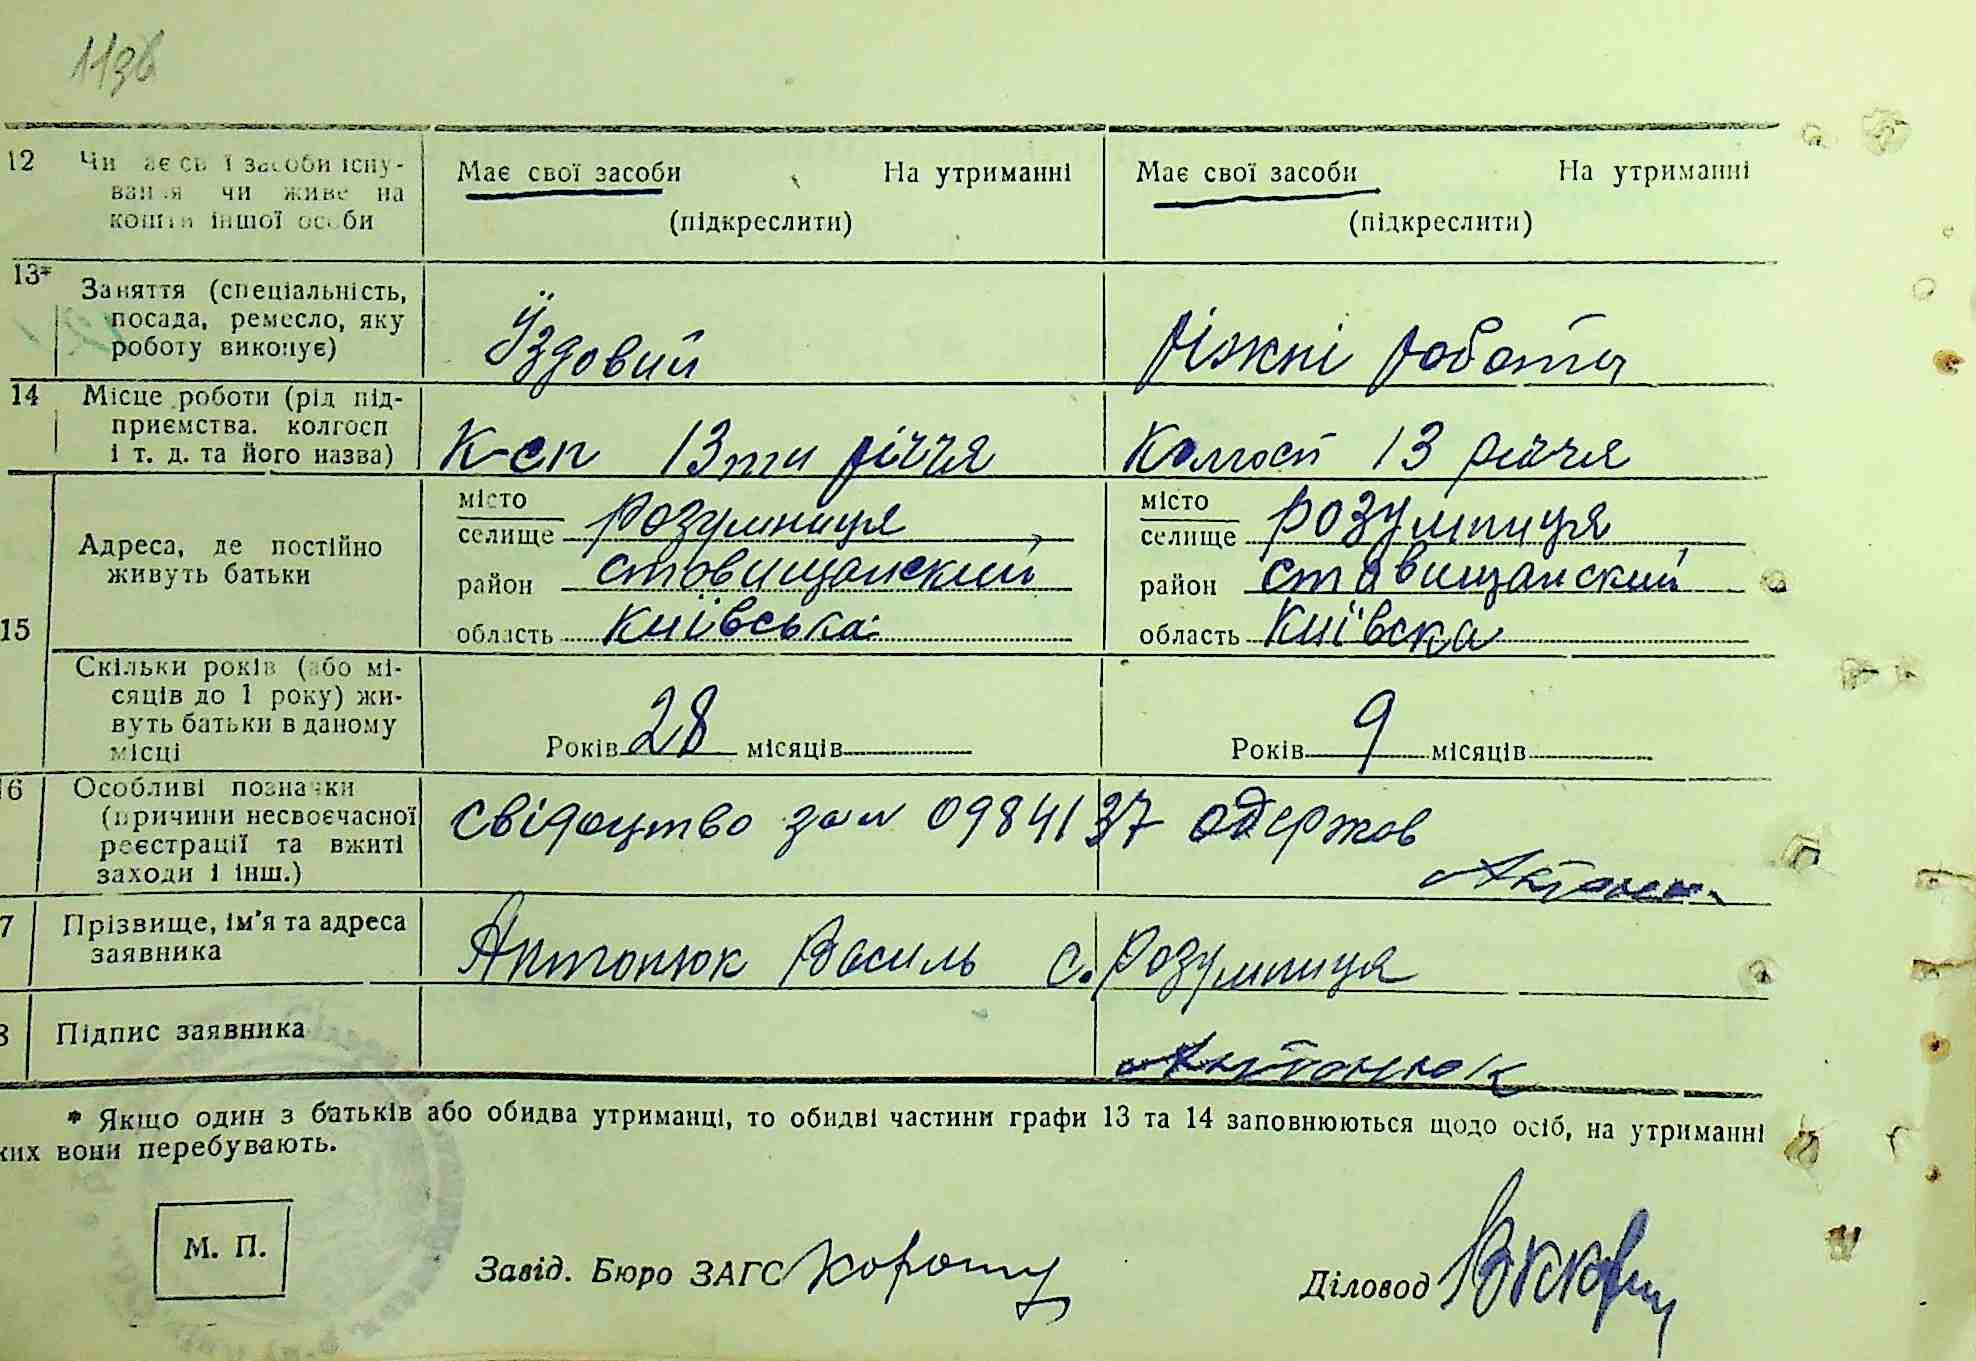 1136
12 Чи має свої засоби існу- Має свої засоби На утриманні Має свої засоби На утриманні
вання чи живе на
кошти іншої особи (підкреслити) (підкреслити)
13* Заняття (спеціальність,
посада, ремесло, яку
роботу виконує) Їздовий ріжні роботи
14 Місце роботи (рід під-
приємства, колгосп
і т. д. та його назва) К-сп 13ти річчя Колгосп 13 річчя
15 Адреса, де постійно
живуть батьки
місто
селище Розумниця
район ставищанский
область Київська
місто
селище Розумниця
район ставищанский
область Київска
Скільки років (або мі-
сяців до 1 року) жи-
вуть батьки в даному
місці Років 28 місяців Років 9 місяців
16 Особливі позначки
(причини несвоєчасної
реєстрації та вжиті
заходи і інш.) свідоцтво за № 0984137 одержав
Антонюк
7 Прізвище, ім'я та адреса
заявника Антонюк Василь с. Розумниця
8 Підпис заявника Антонюк
* Якщо один з батьків або обидва утриманці, то обидві частини графи 13 та 14 заповнюються щодо осіб, на утриманні
ких вони перебувають.
М. П.
Завід. Бюро ЗАГС
Діловод